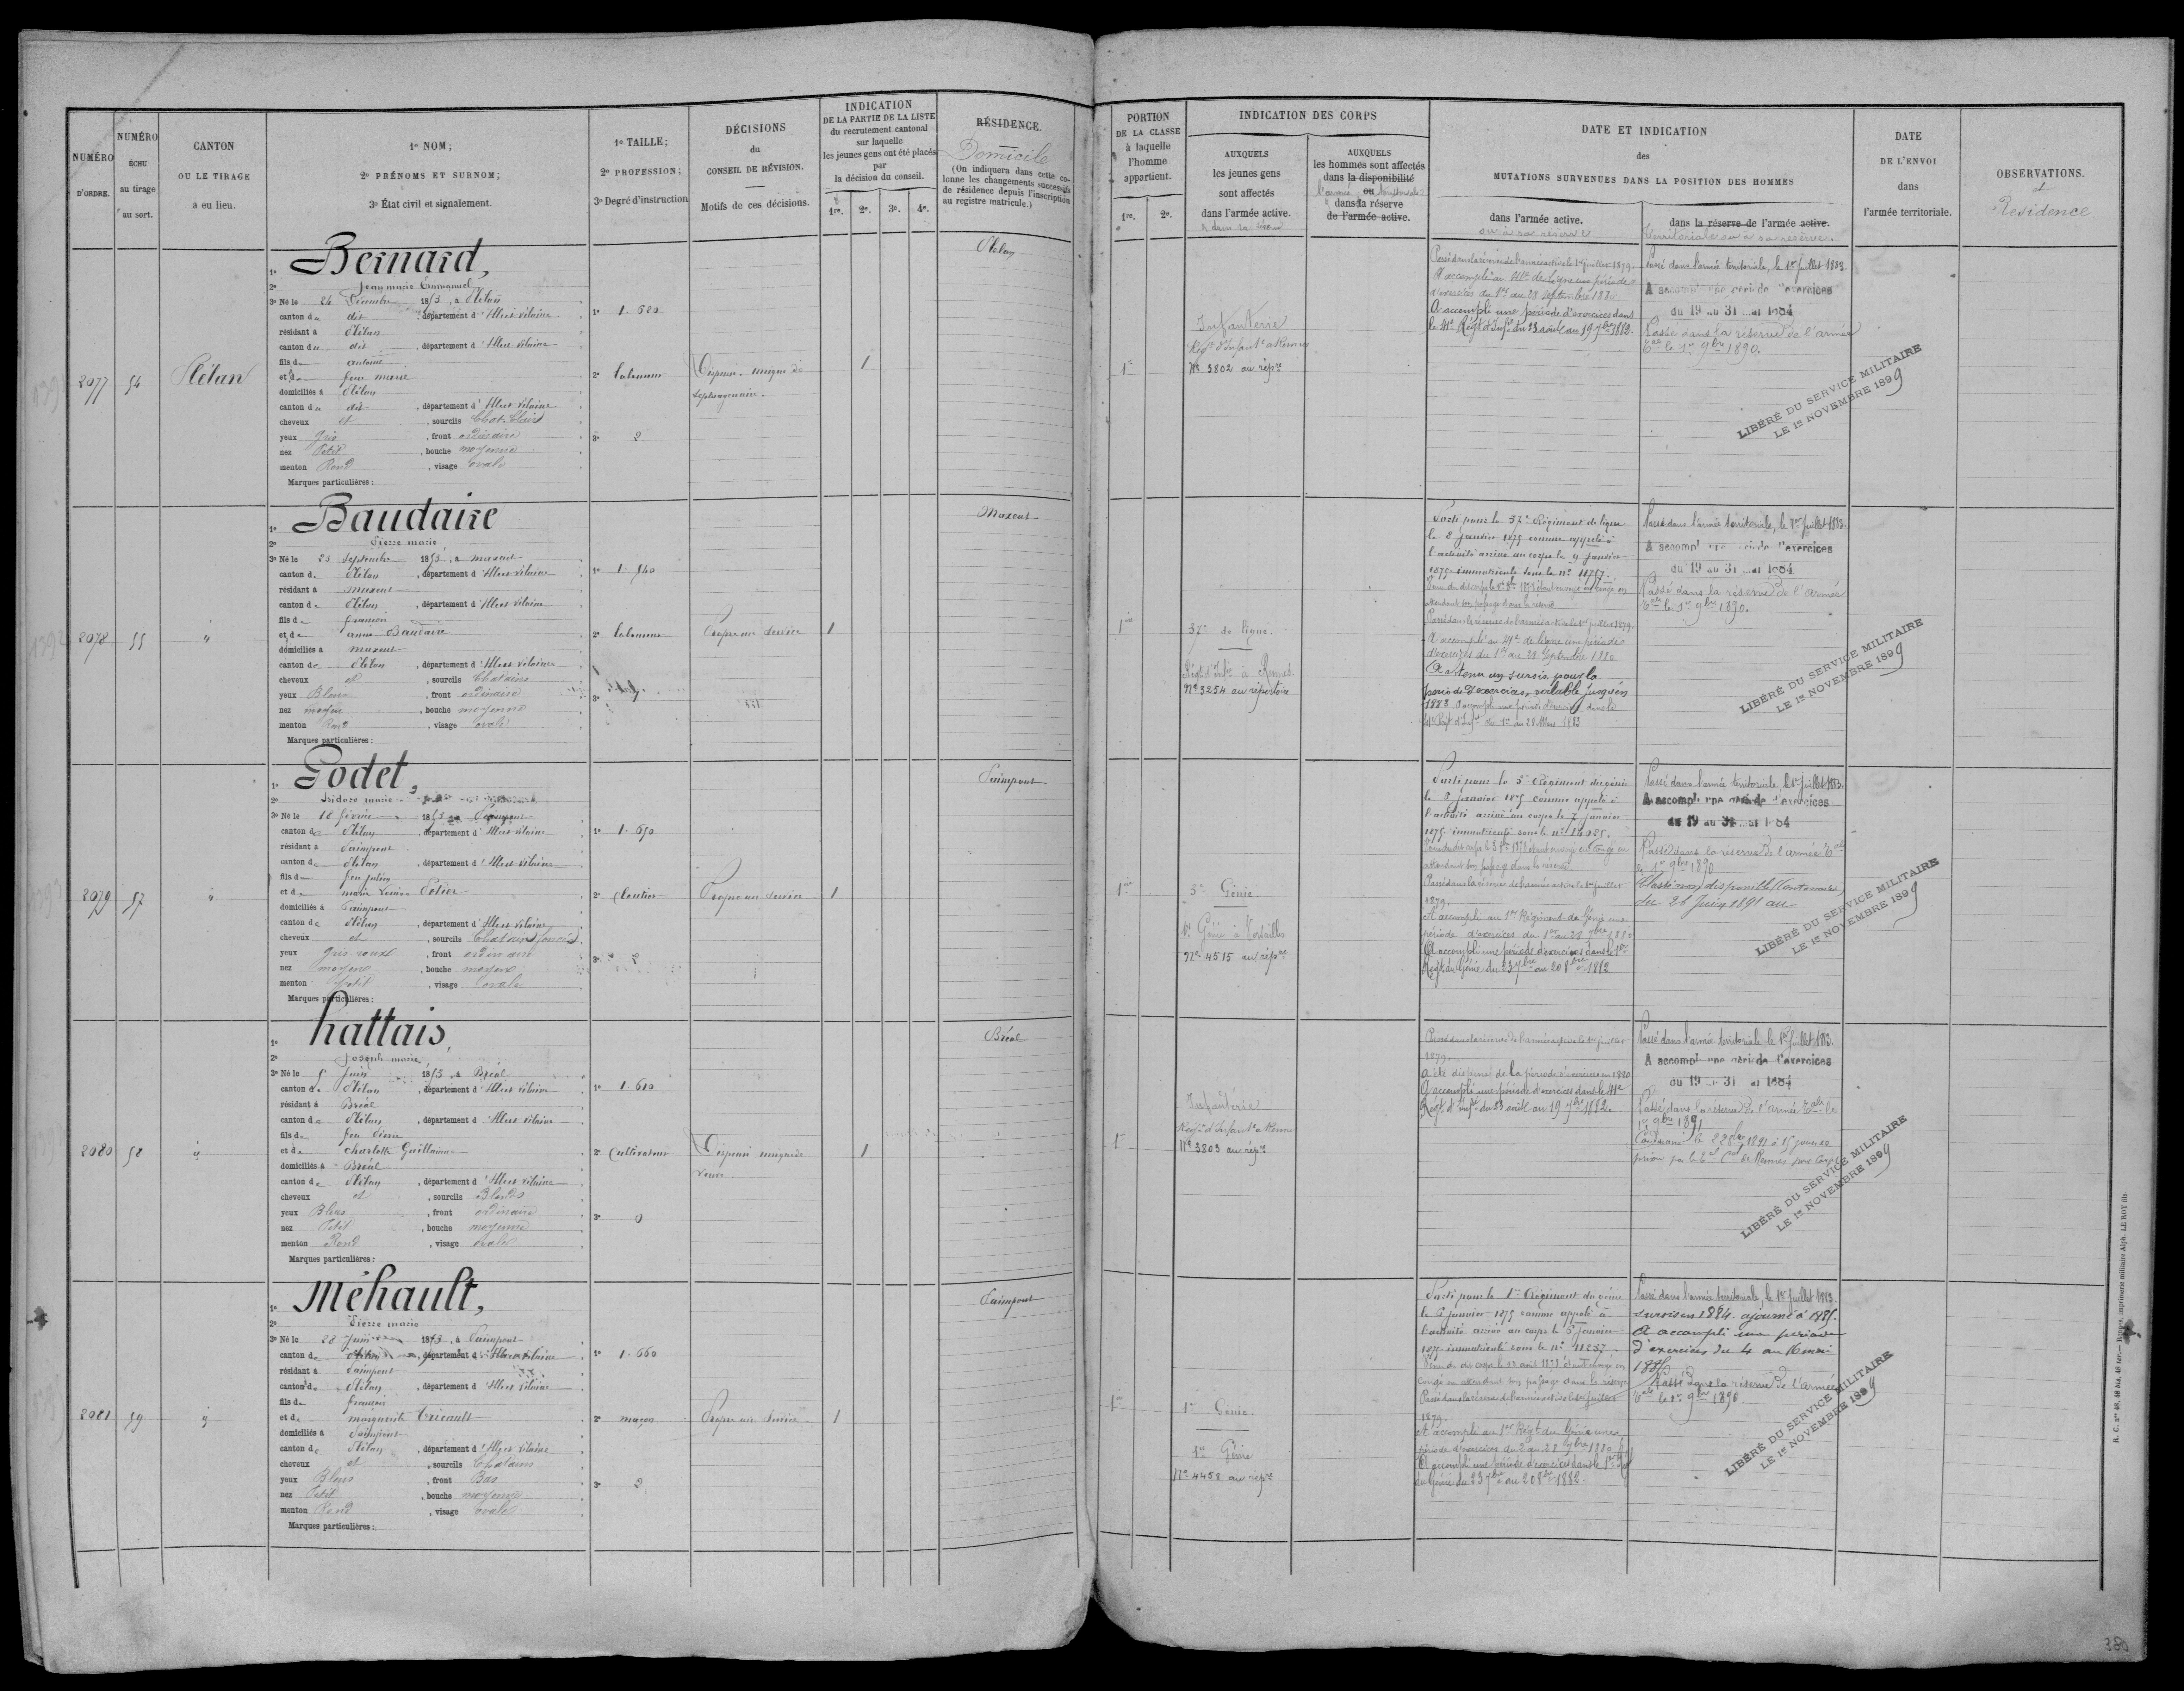 NUMÉRO
D'ORDRE.
NUMÉRO
ÉCHU
au tirage
au sort.
CANTON
OU LE TIRAGE
a eu lieu.
1o NOM;
2o PRÉNOMS ET SURNOM;
3o État civil et signalement.
1o TAILLE;
2o PROFESSION;
3o Degré d'instruction
DÉCISIONS
du
CONSEIL DE RÉVISION.
Motifs de ces décisions.
INDICATION
DE LA PARTIE DE LA LISTE
du recrutement cantonal
sur laquelle
les jeunes gens ont été placés
par
la décision du conseil.
1re. 2e. 3e. 4e.
RÉSIDENCE.
Domicile
(On indiquera dans cette co-
lonne les changements successifs
de résidence depuis l'inscription
au registre matricule.)
PORTION
DE LA CLASSE
à laquelle
l'homme
appartient.
1re. 2e.
INDICATION DES CORPS
AUXQUELS
les jeunes gens
sont affectés
dans l'armée active.
AUXQUELS
les hommes sont affectés
dans la disponibilité
ou
dans la réserve
de l'armée active.
DATE ET INDICATION
des
MUTATIONS SURVENUES DANS LA POSITION DES HOMMES
dans l'armée active.
ou à sa réserve
dans la réserve de l'armée active.
territoriale ou à sa réserve.
DATE
DE L'ENVOI
dans
l'armée territoriale.
OBSERVATIONS.
et
Résidence
2077
54
Plélan
1o Bernard,
2o Jean marie Emmanuel
3o Né le 24 Décembre 1853, à Plélan
canton du dit, département d'Ille et Vilaine
résidant à Plélan
canton du dit, département d'Ille et Vilaine
fils de antoine
et de feue marie
domiciliés à Plélan
canton du dit, département d'Ille et Vilaine
cheveux et, sourcils Chat. Clairs
yeux Gris, front ordinaire
nez Petit, bouche moyenne
menton Rond, visage ovale
Marques particulières:
1o 1.620
2o laboureur
3o 2
Dispensé. unique de
septuagenaire.
1
Plélan
1re
Infanterie
Regt d'Infante à Rennes
No 3802 au répre
Passé dans la réserve de l'armée active le 1er juillet 1879.
A accompli au 41e de ligne une période
d'exercices du 1er au 28 septembre 1880
A accompli une période d'exercices dans
le 41e Régt d'Infie du 23 août au 19 7bre 1882.
Passé dans l'armée territoriale, le 1er Juillet 1883.
A accompli une période d'exercices
du 19 au 31 mai 1884
Passé dans la réserve de l'armée
tale le 1er 9bre 1890.
LIBÉRÉ DU SERVICE MILITAIRE
LE 1er NOVEMBRE 1899
2078
55
"
1o Baudaire
2o Pierre marie
3o Né le 25 septembre 1853, à maxent
canton de Plélan, département d'Ille et Vilaine
résidant à maxent
canton de Plélan, département d'Ille et Vilaine
fils de françois
et de anne Baudaire
domiciliés à maxent
canton de Plélan, département d'Ille et Vilaine
cheveux et, sourcils Chatains
yeux Bleus, front ordinaire
nez moyen, bouche moyenne
menton Rond, visage ovale
Marques particulières:
1o 1.540
2o laboureur
3o
Propre au service
1
Maxent
1re
37e de ligne.
Régt d'Infie à Rennes
No 3254 au répertoire
Parti pour le 37e Régiment de ligne
le 8 janvier 1875 comme appelé à
l'activité arrivé au corps le 9 janvier
1875 immatriculé sous le no 11757.
attendant son passage dans la réserve
Passé dans la réserve de l'armée active le 1er juillet 1879.
A accompli au 41e de ligne une période
d'exercices du 1er au 28 septembre 1880
A obtenu un sursis pour la
période d'exercices, valable jusqu'en
1883. A accompli une période d'exercices dans le
41e Régt d'Infie du 1er au 28 Mars 1883
Passé dans l'armée territoriale, le 1er Juillet 1883.
A accompli une période d'exercices
du 19 au 31 mai 1884
Passé dans la réserve de l'armée
tale le 1er 9bre 1890.
LIBÉRÉ DU SERVICE MILITAIRE
LE 1er NOVEMBRE 1899
2079
57
"
1o Godet,
2o Isidore marie
3o Né le 18 février 1853, à Paimpont
canton de Plélan, département d'Ille et Vilaine
résidant à Paimpont
canton de Plélan, département d'Ille et Vilaine
fils de feu julien
et de marie Louise
domiciliés à Paimpont
canton de Plélan, département d'Ille et Vilaine
cheveux et, sourcils Chatains foncés
yeux Gris roux, front ordinaire
nez moyen, bouche moyenne
menton Petit, visage ovale
Marques particulières:
1o 1.650
2o cloutier
3o 2
Propre au service
1
Paimpont
1re
3e Génie.
1er Génie à Versailles
No 4515 au répre
Parti pour le 3e Régiment du génie
le 8 janvier 1875 comme appelé à
l'activité arrivé au corps le 7 janvier
attendant son passage dans la réserve
Passé dans la réserve de l'armée active le 1er juillet
1879.
A accompli au 1er Régiment de Génie une
période d'exercices du 1er au 28 7bre 1880
A accompli une période d'exercices dans le 1er
Régt du Génie du 23 7bre au 20 8bre 1882
Passé dans l'armée territoriale le 1er Juillet 1883.
A accompli une période d'exercices
du 19 au 31 mai 1884
Passé dans la réserve de l'armée tale
le 1er 9bre 1890
Classé non disponible
du 26 Juin 1891 au
LIBÉRÉ DU SERVICE MILITAIRE
LE 1er NOVEMBRE 1899
2080
58
"
1o hattais,
2o Joseph marie
3o Né le Juin 1853, à Bréal
canton de Plélan, département d'Ille et Vilaine
résidant à Bréal
canton de Plélan, département d'Ille et Vilaine
fils de feu Pierre
et de charlotte Guillaume
domiciliés à Bréal
canton de Plélan, département d'Ille et Vilaine
cheveux et, sourcils Blonds
yeux Bleus, front ordinaire
nez Petit, bouche moyenne
menton Rond, visage ovale
Marques particulières:
1o 1.610
2o Cultivateur
3o 0
Dispensé unique de
veuve.
1
Bréal
1re
Infanterie
Regt d'Infante à Rennes
No 3803 au répre
Passé dans la réserve de l'armée active le 1er juillet
1879.
A été dispensé de la période d'exercices en 1880
A accompli une période d'exercices dans le 41e
Régt d'Infie du 23 août au 19 7bre 1882.
Passé dans l'armée territoriale le 1er Juillet 1883.
A accompli une période d'exercices
du 19 au 31 mai 1884
Passé dans la réserve de l'armée tale le
1er 9bre 1891
Condamné le 1891 à 15 jours de
prison par le de Rennes pour
LIBÉRÉ DU SERVICE MILITAIRE
LE 1er NOVEMBRE 1899
2081
59
"
1o Méhault,
2o Pierre marie
3o Né le 28 Juin 1853, à Paimpont
canton de Plélan, département d'Ille et Vilaine
résidant à Paimpont
canton de Plélan, département d'Ille et Vilaine
fils de françois
et de marguerite Tricault
domiciliés à Paimpont
canton de Plélan, département d'Ille et Vilaine
cheveux et, sourcils Chatains
yeux Bleus, front Bas
nez Petit, bouche moyenne
menton Rond, visage ovale
Marques particulières:
1o 1.660
2o maçon
3o 2
Propre au service
1
Paimpont
1re
1er Génie.
1er Génie
No 4458 au répre
Parti pour le 1er Régiment du génie
le 6 janvier 1875 comme appelé à
l'activité arrivé au corps le 8 janvier
1875 immatriculé sous le no 11257.
congé en attendant son passage dans la réserve
Passé dans la réserve de l'armée active le 1er juillet
1879.
A accompli au 1er Régt du Génie une
période d'exercices du 2 au 28 7bre 1880
A accompli une période d'exercices dans le 1er Régt
du Génie du 23 7bre au 20 8bre 1882
Passé dans l'armée territoriale, le 1er Juillet 1883.
sursis en 1884. ajourné à 1885.
A accompli une période
d'exercices du 4 au 16 mai
Passé dans la réserve de l'armée
tale le 1er 9bre 1890.
LIBÉRÉ DU SERVICE MILITAIRE
LE 1er NOVEMBRE 1899
380